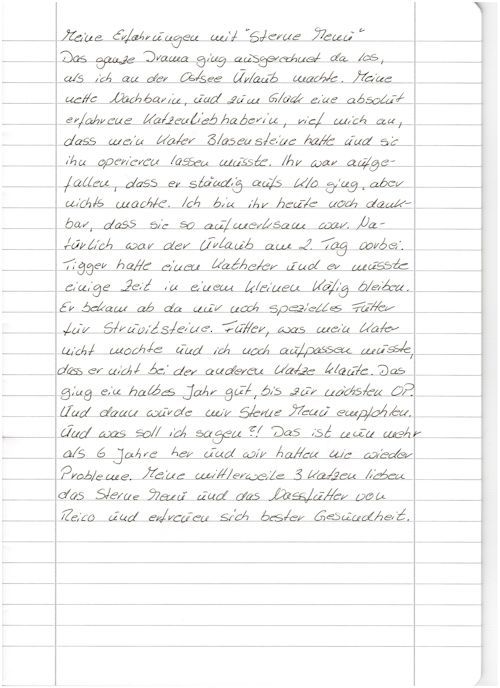 Meine Erfahrungen mit "Sterne Menü"
Das ganze Drama ging ausgerechnet da los,
als ich an der Ostsee Urlaub machte. Meine
nette Nachbarin, und zum Glück eine absolut
erfahrene Katzenliebhaberin, rief mich an,
dass mein Kater Blasensteine hatte und sie
ihn operieren lassen müsste. Ihr war aufge-
fallen, dass er ständig aufs Klo ging, aber
nichts machte. Ich bin ihr heute noch dank-
bar, dass sie so aufmerksam war. Na-
türlich war der Urlaub am 2. Tag vorbei.
Tigger hatte einen Katheter und er musste
einige Zeit in einem kleinen Käfig bleiben.
Er bekam ab da nur noch spezielles Futter
für Struvitsteine. Futter, was mein Kater
nicht mochte und ich noch aufpassen musste,
dass er nicht bei der anderen Katze klaute. Das
ging ein halbes Jahr gut, bis zur nächsten OP.
Und dann wurde mir Sterne Menü empfohlen.
Und was soll ich sagen?! Das ist nun mehr
als 6 Jahre her und wir hatten nie wieder
Probleme. Meine mittlerweile 3 Katzen lieben
das Sterne Menü und das Nassfutter von
Reico und erfreuen sich bester Gesundheit.